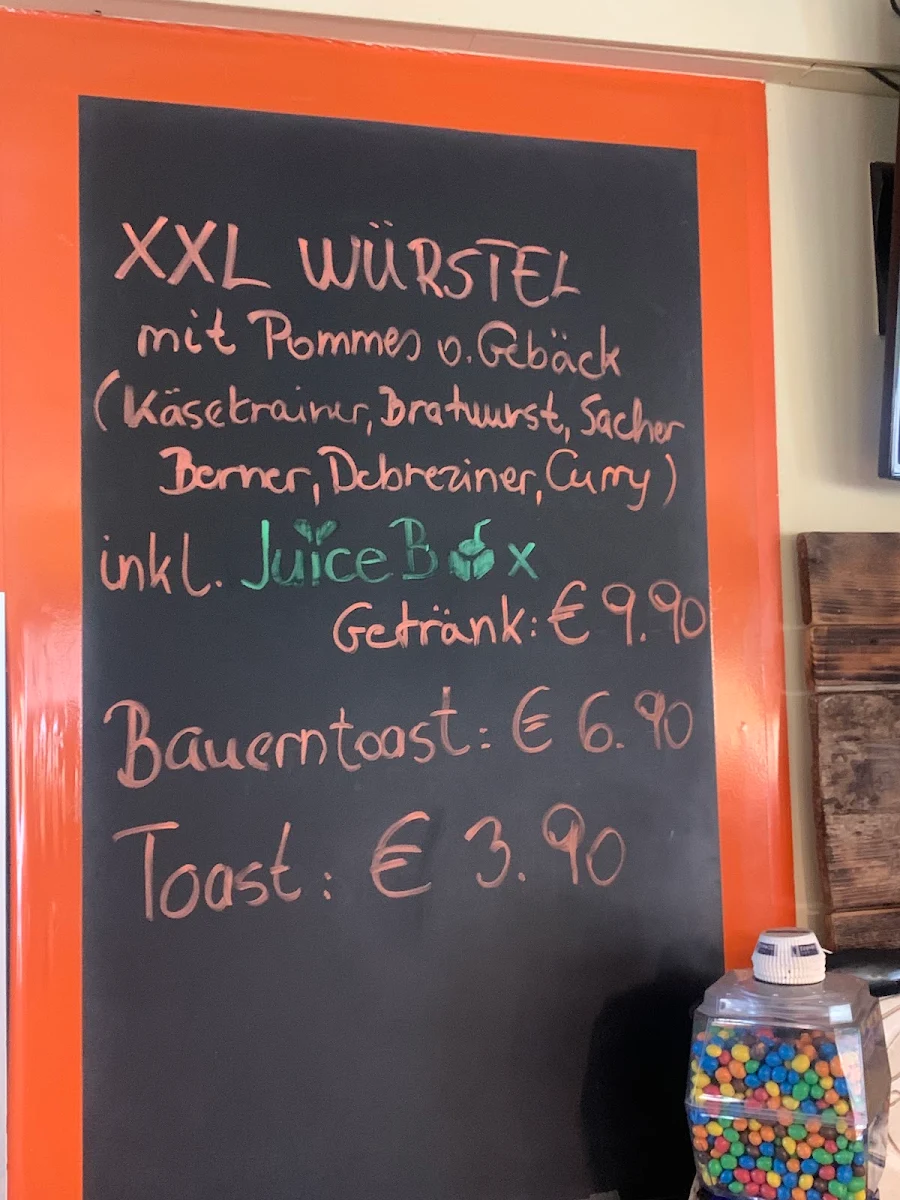 XXL WÜRSTEL
mit Pommes o. Gebäck
(Käsekrainer, Bratwurst, Sacher
Berner, Debreziner, Curry)
inkl. Juice Box
Getränk: € 9.90
Bauerntoast: € 6.90
Toast: € 3.90